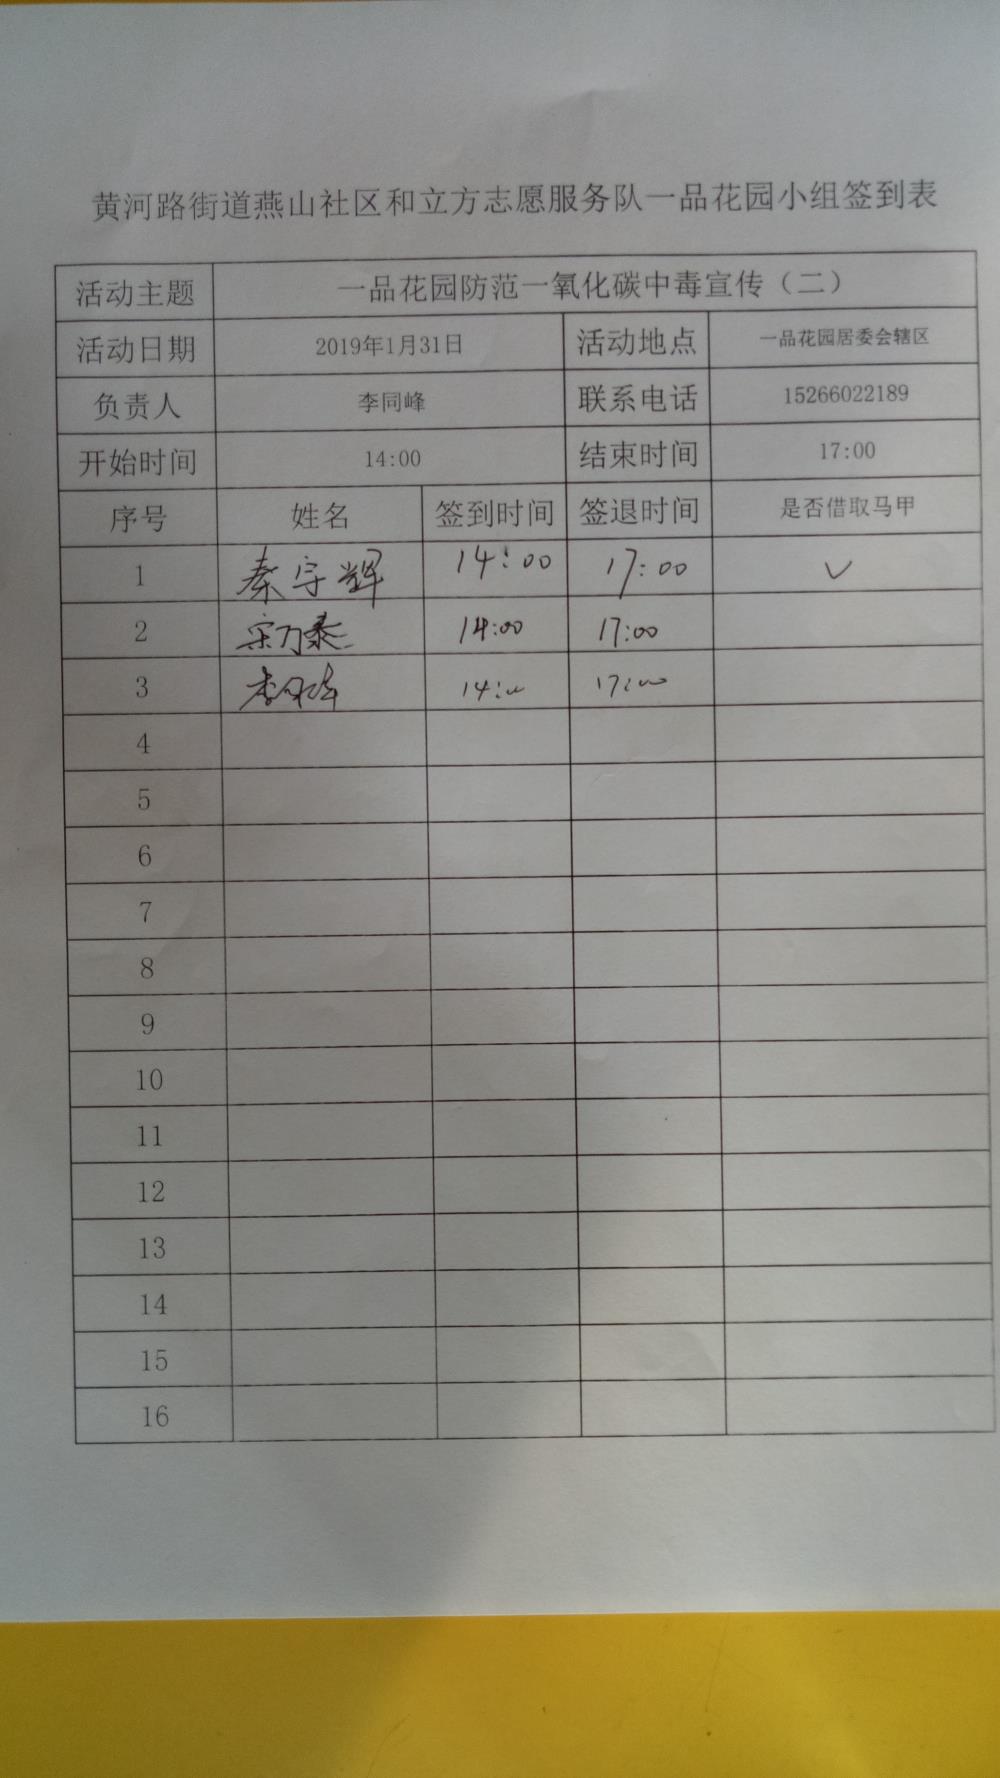 黄河路街道燕山社区和立方志愿服务队一品花园小组签到表
活动主题 一品花园防范一氧化碳中毒宣传（二）
活动日期 2019年1月31日 活动地点 一品花园居委会辖区
负责人 李同峰 联系电话 15266022189
开始时间 14:00 结束时间 17:00
序号 姓名 签到时间 签退时间 是否借取马甲
1 秦宇辉 14:00 17:00 √
2 宋乃泰 14:00 17:00
3 14:00 17:00
4
5
6
7
8
9
10
11
12
13
14
15
16